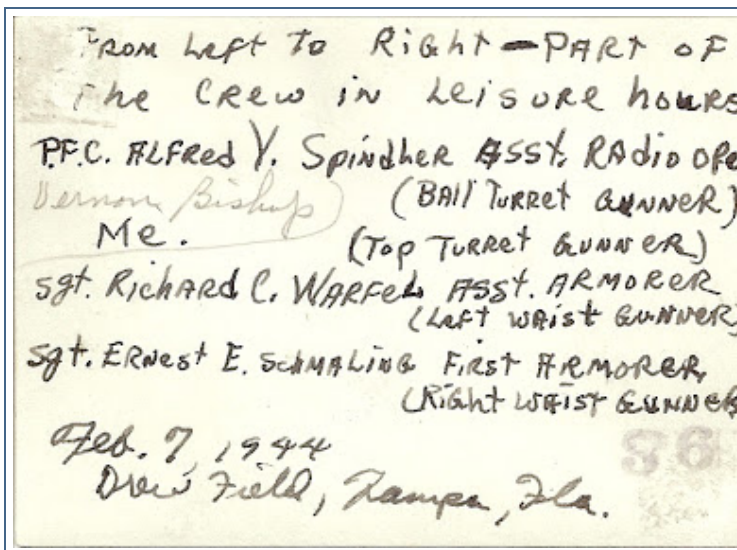 From Left To Right - PART OF
The CREW in Leisure hours
P.F.C. ALFRed V. Spindher ASST. RAdio Ope
Vernon Bishop) (BAll TURRet GUNNER)
Me. (Top TURRET GUNNER)
Sgt. RichARd C. WARFel ASST. ARMORER
(Left WAist GUNNER)
Sgt. ERNest E. SchMALING FIRST ARMORER,
(Right WAIST GUNNER
Feb. 7, 1944
Drew Field, Tampa, Fla.
36